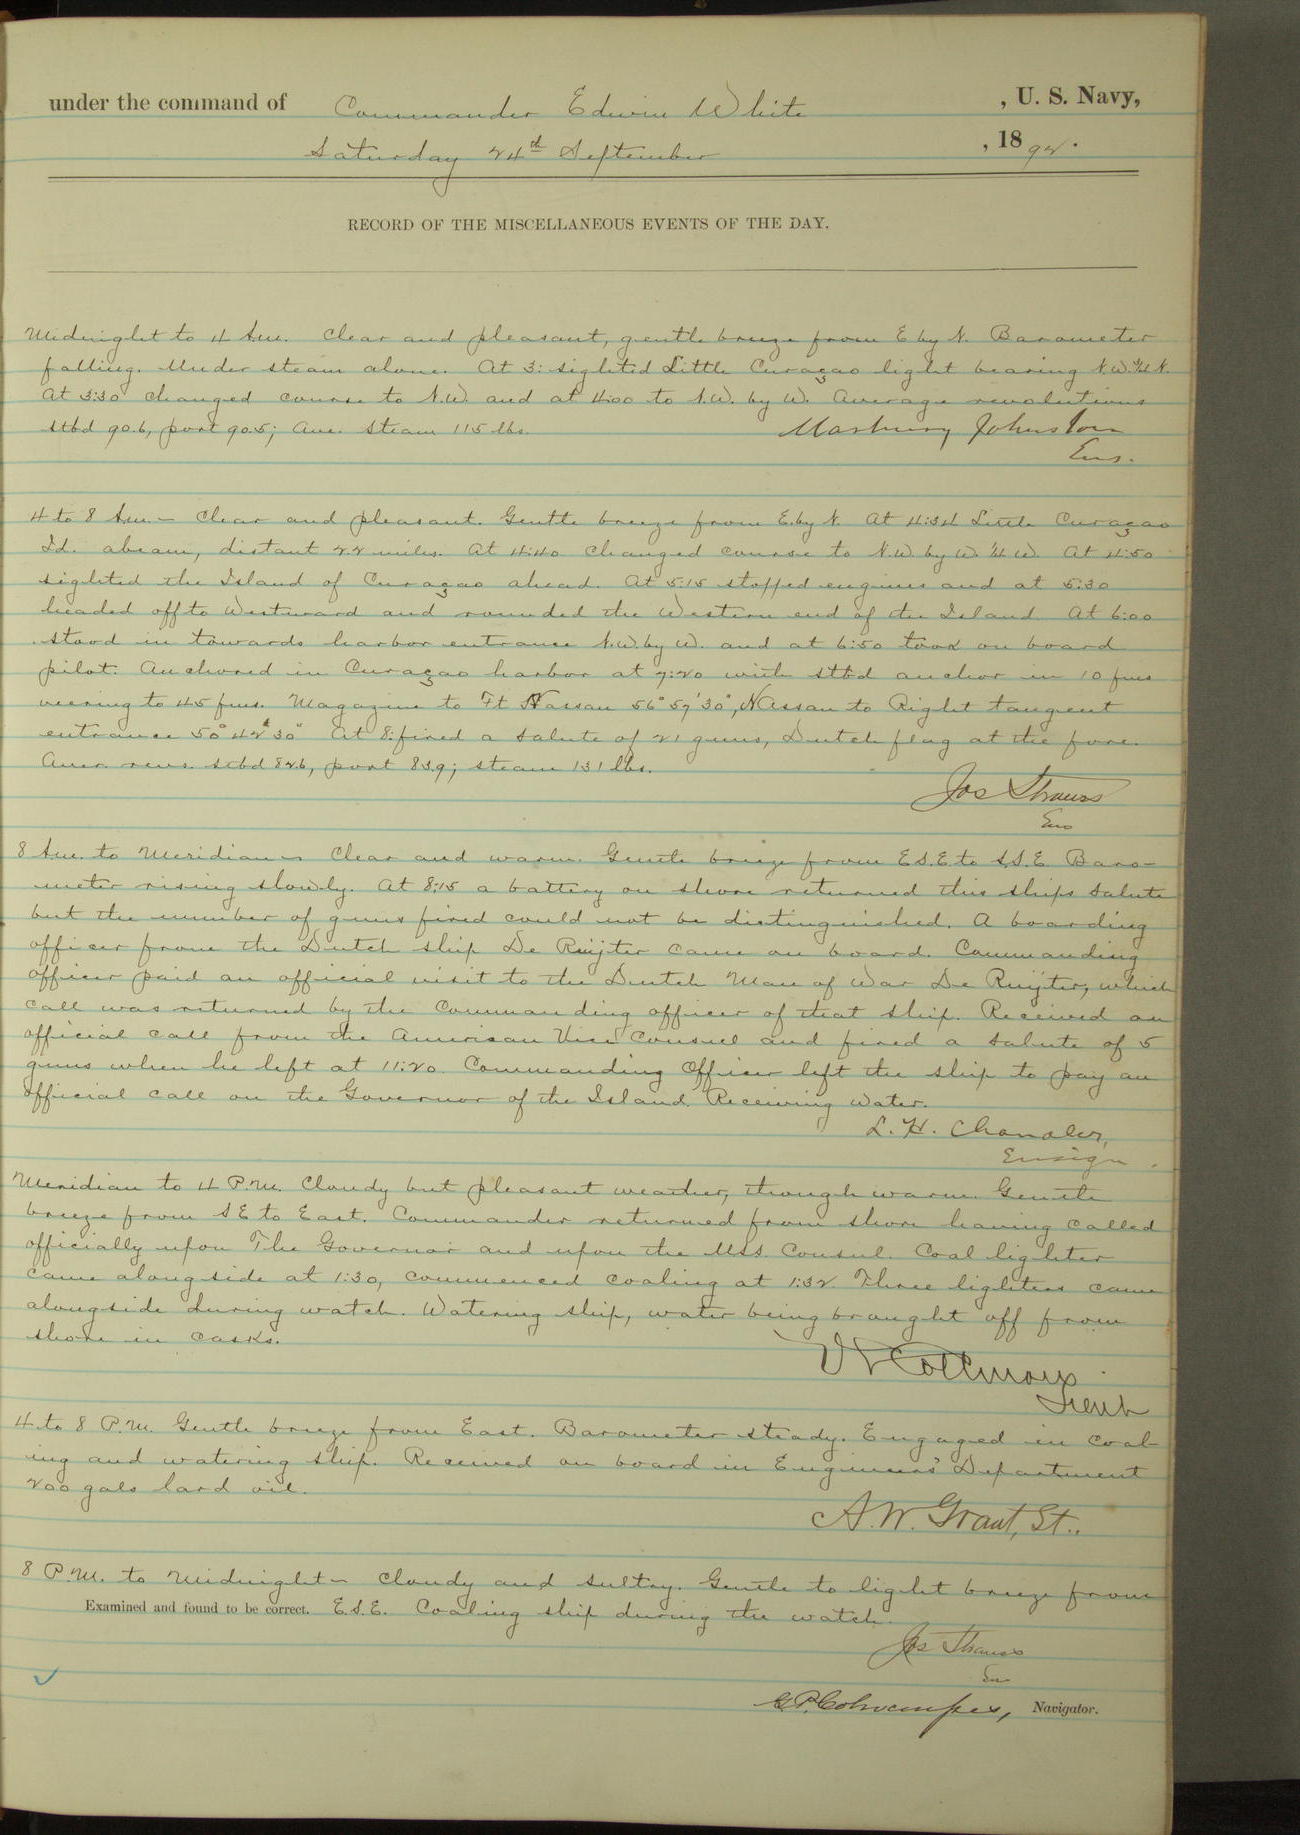 under the command of Commander Edwin White , U. S. Navy,
Saturday 24th September , 1892.
RECORD OF THE MISCELLANEOUS EVENTS OF THE DAY.
Midnight to 4 A.m. Clear and pleasant, gentle breeze from E by N. Barometer
falling. Under steam alone. At 3: sighted Little Curaçao light bearing N.W. 3/4 N.
At 3:30 changed course to N.W. and at 4:00 to N.W. by W. Average revolutions
stbd 90.6, port 90.5; Ave. steam 115 lbs.
Marbury Johnston
Ens.
4 to 8 A.m. – Clear and pleasant. Gentle breeze from E. by N. At 4:34 Little Curaçao
Id. abeam, distant 2.2 miles. At 4:40 changed course to N.W. by W. 1/4 W. At 4:50
sighted the Island of Curaçao ahead. At 5:15 stopped engines and at 5:30
headed off to Westward and rounded the Western end of the Island. At 6:00
stood in towards harbor entrance N.W. by W. and at 6:50 took on board
pilot. Anchored in Curaçao harbor at 7:20 with stbd anchor in 10 fms
veering to 45 fms. Magazine to Ft Nassau 56° 57' 30", Nassau to Right tangent
entrance 50° 42' 30" At 8: fired a salute of 21 guns, Dutch flag at the fore.
Aver. revs. stbd 82.6, port 83.9; steam 131 lbs.
Jos Strauss
Ens
8 A.m. to Meridian – Clear and warm. Gentle breeze from E.S.E. to S.S.E. Baro-
meter rising slowly. At 8:15 a battery on shore returned this ships salute
but the number of guns fired could not be distinguished. A boarding
officer from the Dutch ship De Ruijter came on board. Commanding
officer paid an official visit to the Dutch Man of War De Ruijter, which
call was returned by the Commanding officer of that ship. Received an
official call from the American Vice Consul and fired a salute of 5
guns when he left at 11:20. Commanding Officer left the ship to pay an
official call on the Governor of the Island. Receiving water.
L. H. Chandler,
Ensign.
Meridian to 4 P.M. Cloudy but pleasant weather, though warm. Gentle
breeze from SE to East. Commander returned from shore having called
officially upon The Governor and upon the U.S. Consul. Coal lighter
came alongside at 1:30, commenced coaling at 1:32. Three lighters came
alongside during watch. Watering ship, water being brought off from
shore in casks.
Lieut
4 to 8 P.M. Gentle breeze from East. Barometer steady. Engaged in coal-
ing and watering ship. Received on board in Engineers' Department
200 gals lard oil.
A. W. Grant, Lt..
8 P.M. to Midnight – Cloudy and sultry. Gentle to light breeze from
Examined and found to be correct. E.S.E. Coaling ship during the watch.
Jos Strauss
Ens
Navigator.